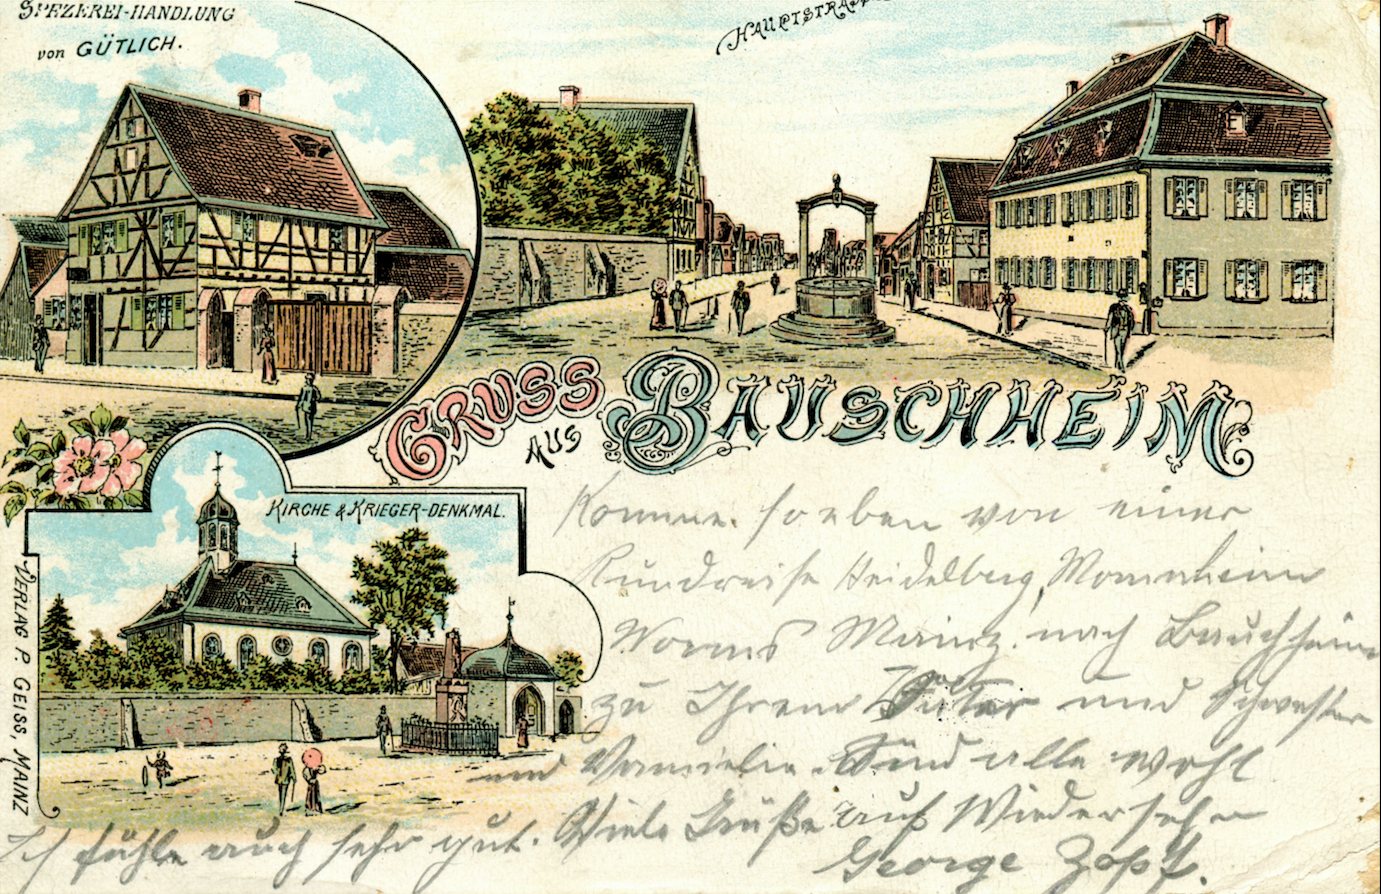 SPEZEREI-HANDLUNG
von GÜTLICH.
HAUPTSTRASSE
GRUSS
AUS
BAUSCHHEIM
KIRCHE & KRIEGER-DENKMAL.
VERLAG P. GEISS, MAINZ
Komme soeben von einer
Rundreise Heidelberg, Mannheim
Worms Mainz. nach Bauschheim
zu Ihrem Vater und Schwester
und Familie. Sind alle wohl
Ich fühle auch sehr gut. Viele Grüße auf Wiedersehn
George Zopf.